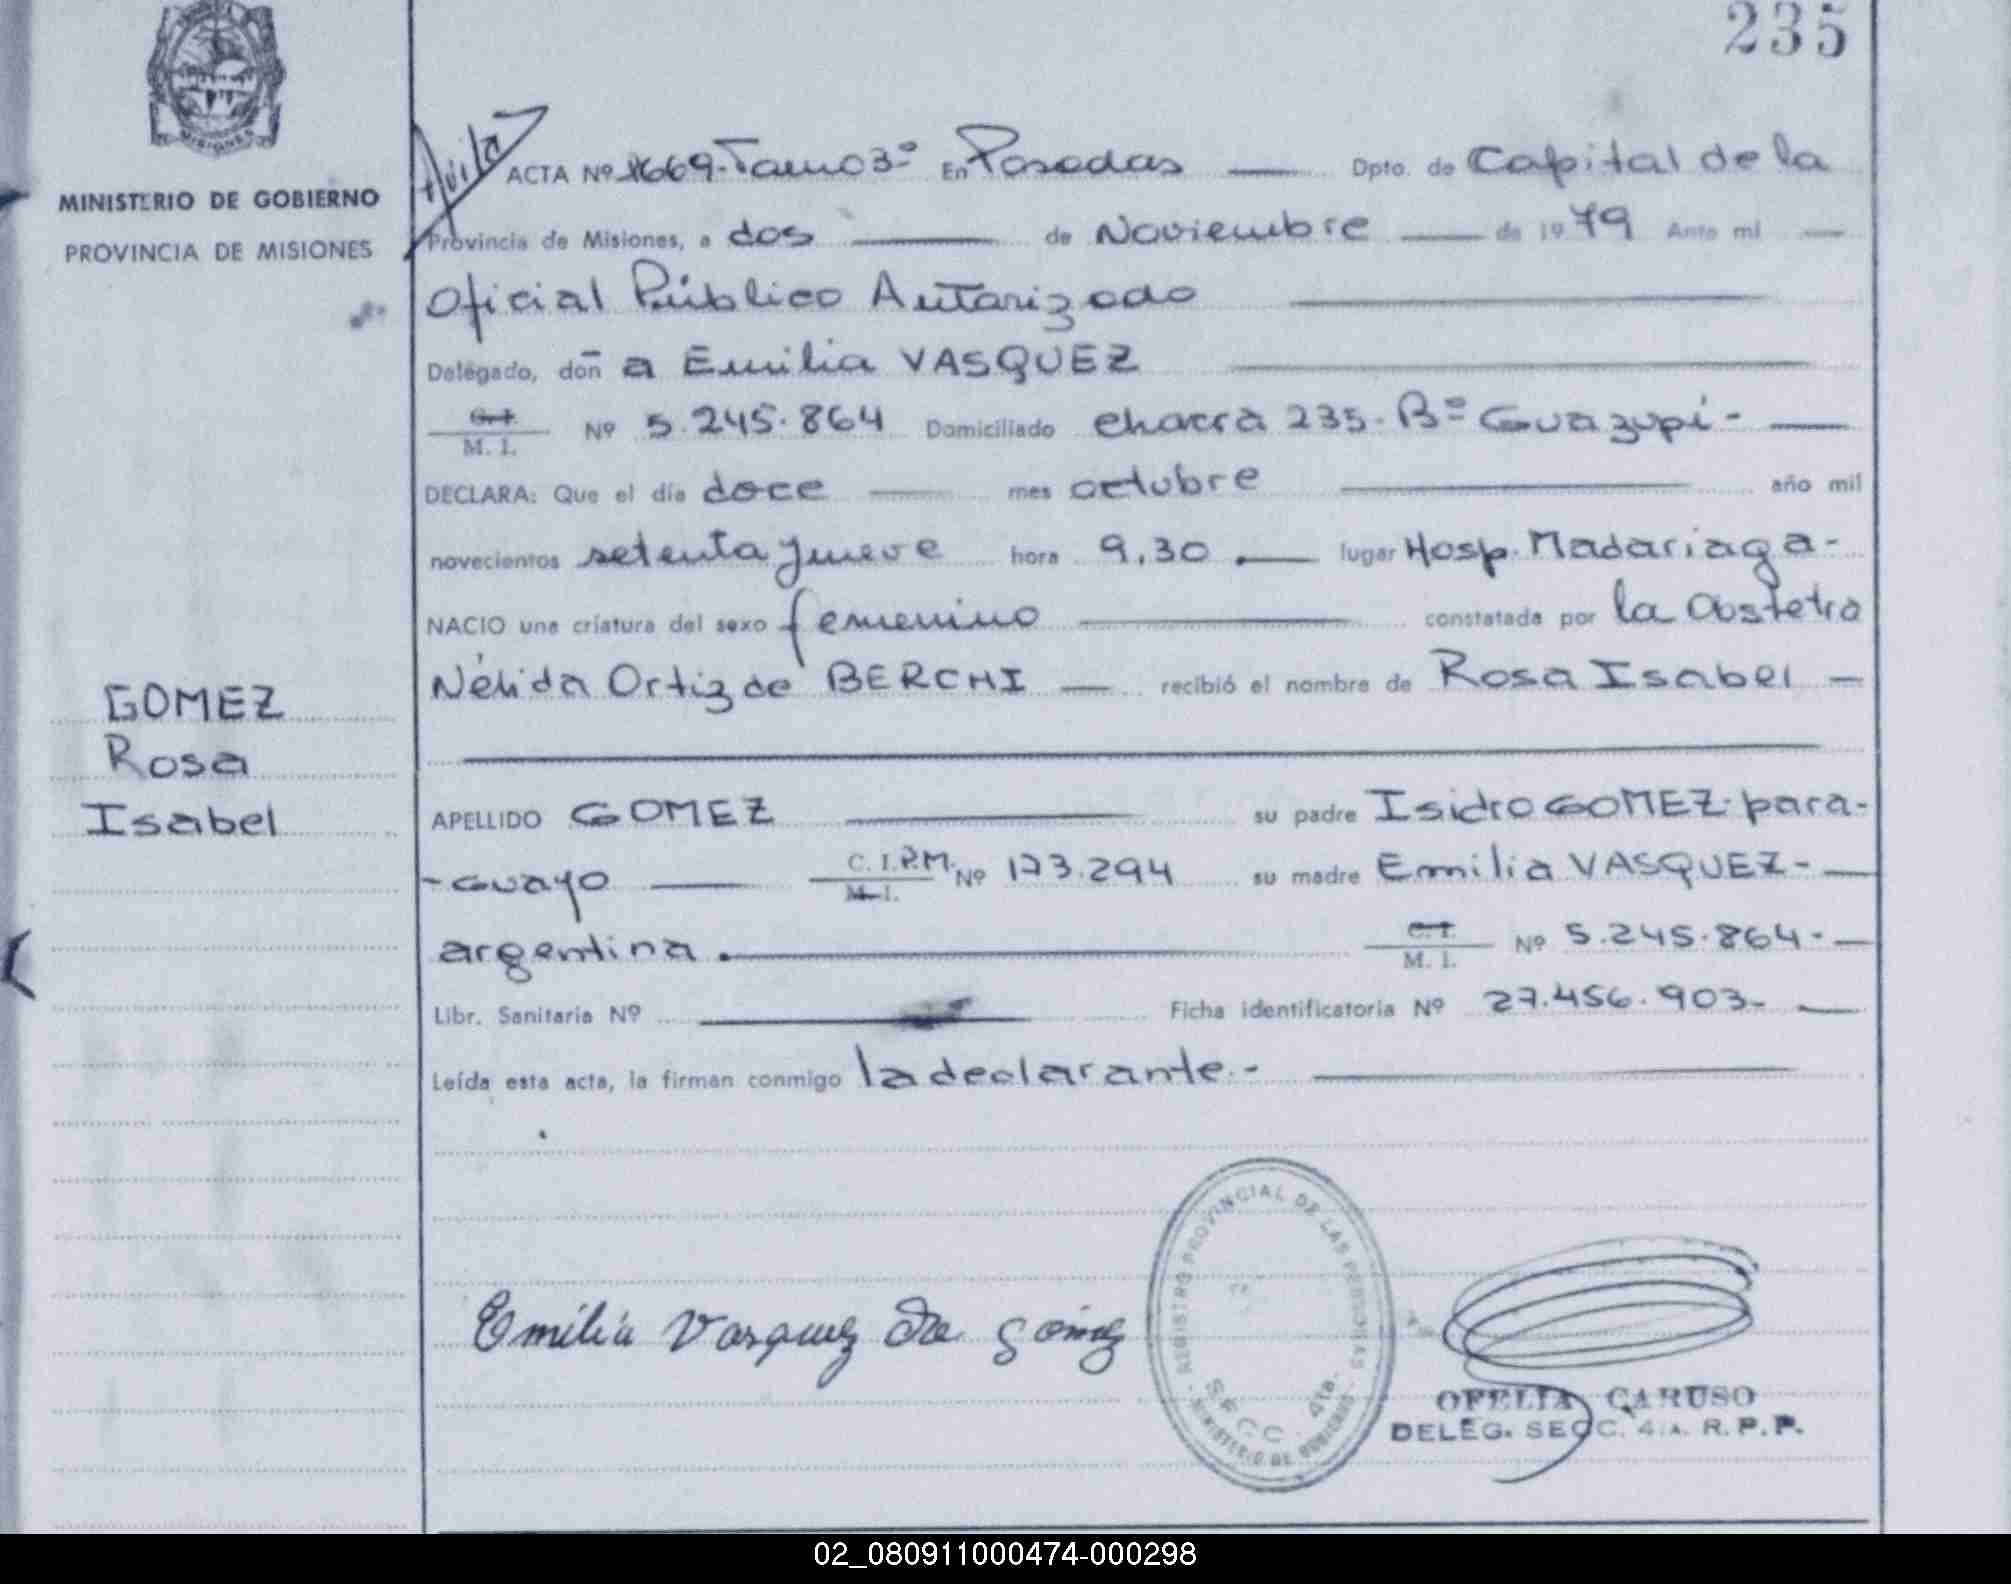 235
MISIONES
MINISTERIO DE GOBIERNO
PROVINCIA DE MISIONES
GOMEZ
Rosa
Isabel
ACTA Nº 1669-Tomo 3º En Posadas Dpto. de Capital de la
Provincia de Misiones, a dos de Noviembre de 1979 Ante mi
Oficial Público Autorizado
Delegado, don a Emilia VASQUEZ
C. I.
M. I. Nº 5.245.864 Domiciliado chacra 235-Bº Guazupi-
DECLARA: Que el día doce mes octubre año mil
novecientos setenta y nueve hora 9,30 lugar Hosp. Madariaga-
NACIO una criatura del sexo femenino constatada por la Obstetra
Nélida Ortiz de BERCHI recibió el nombre de Rosa Isabel
APELLIDO GOMEZ su padre Isidro GOMEZ-para-
-guayo C. I. P.M. Nº 173.294 su madre Emilia VASQUEZ-
M. I.
argentina. C. I.
M. I. Nº 5.245.864-
Libr. Sanitaria Nº Ficha identificatoria Nº 27.456.903-
Leída esta acta, la firman conmigo la declarante.-
Emilia Vasquez de Gomez
REGISTRO PROVINCIAL DE LAS PERSONAS
SECC. 4ta.
MINISTERIO DE GOBIERNO
OFELIA CARUSO
DELEG. SECC. 4ª. R. P. P.
02_080911000474-000298